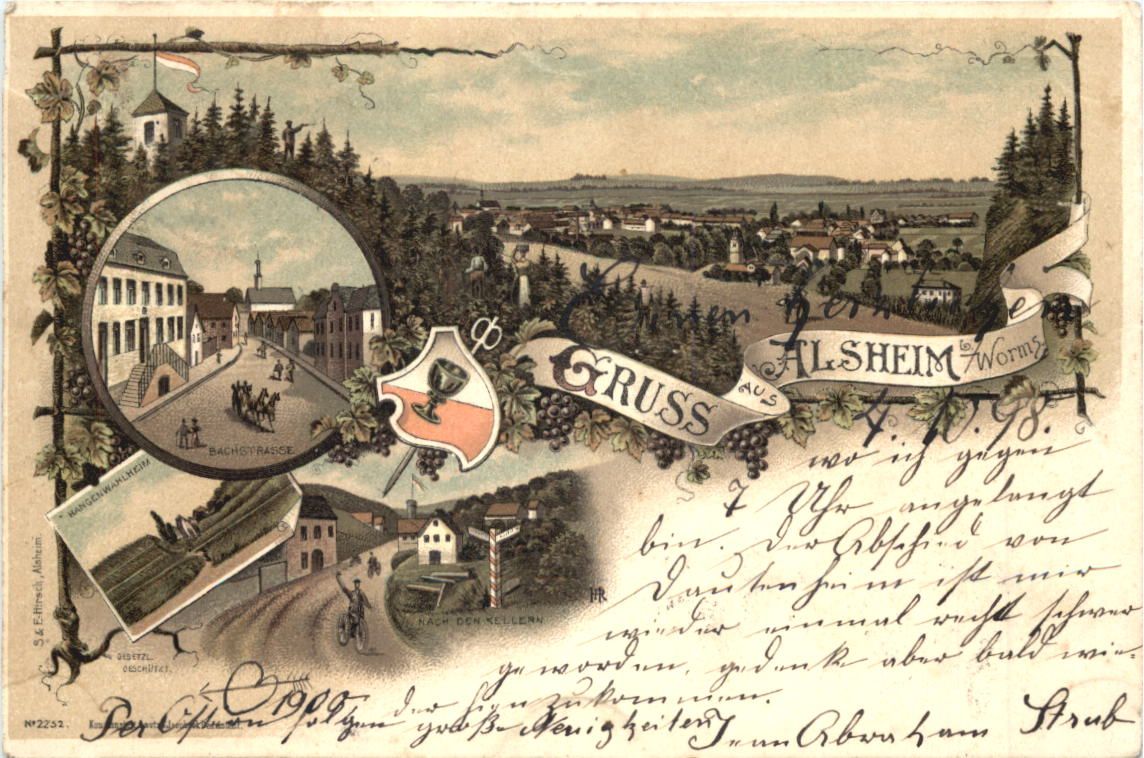 GRUSS
AUS
ALSHEIM
b/Worms.
BACHSTRASSE
HANGENWAHLHEIM
NACH DEN KELLERN
HR
S. & E. Hirsch, Alsheim.
GESETZL.
GESCHÜTZT.
No 2252.
4. 10. 98.
wo ich gegen
7 Uhr angelangt
bin. Der Abschied von
Dautenheim ist mir
wieder einmal recht schwer
geworden, gedenke aber bald wie-
der hinzukommen.
1900
Per Ostern folgen große Neuigkeiten
Jean Abraham Strub